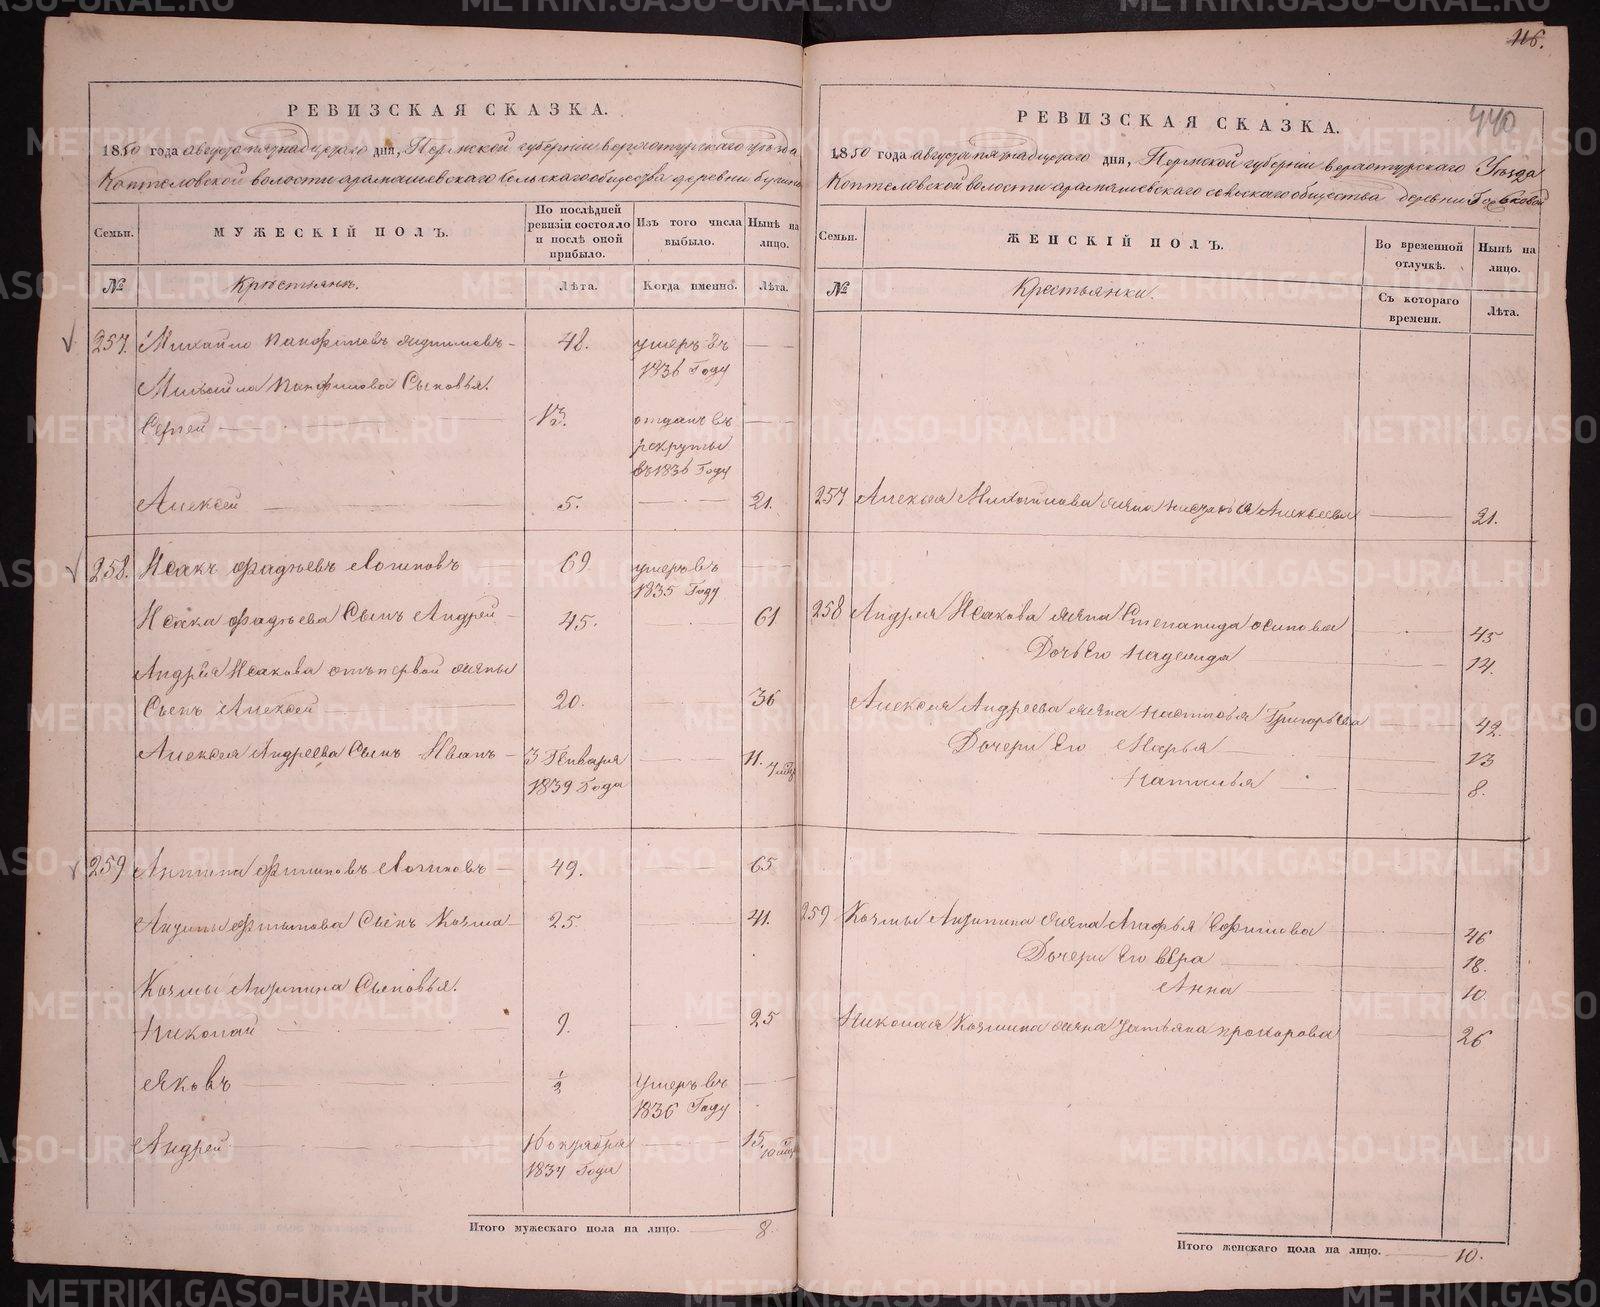 116.
440
РЕВИЗСКАЯ СКАЗКА.
1850 года августа пятнадцатаго дня, Пермской губерніи верхотурскаго уѣзда
Коптеловской волости арамашевскаго сельскаго общества деревни
Семьи.
МУЖЕСКІЙ ПОЛЪ.
По послѣдней ревизіи состояло и послѣ оной прибыло.
Изъ того числа выбыло.
Нынѣ на лицо.
№
Крестьянъ.
Лѣта.
Когда именно.
Лѣта.
257. Михайло Панфиловъ 48. умеръ въ 1836 Году
Михайла Панфилова Сыновья.
Сергей 13 1/2. отданъ въ рекруты въ 1836 Году
Алексей 5. 21.
258. Исакъ Фадѣевъ Логиновъ 69 умеръ въ 1835 Году
Исака Фадѣева Сынъ Андрей 45. 61
Андрея Исакова отъ первой жены
Сынъ Алексей 20. 36
Алексея Андреева Сынъ Иванъ 3 Генваря 1839 Года 11. 7 мѣ
259 Антипа Филиповъ Логиновъ 49. 65
Антипы Филипова Сынъ Козма 25. 41.
Козмы Антипина Сыновья.
Николай 9. 25
Яковъ 1/2 Умеръ въ 1836 Году
Андрей 16 октября 1834 Года 15. 10 мѣ
Итого мужескаго пола на лицо. 8.
РЕВИЗСКАЯ СКАЗКА.
1850 года августа пятнадцатаго дня, Пермской губерніи верхотурскаго Уѣзда
Коптеловской волости арамашевскаго сельскаго общества деревни
Семьи.
ЖЕНСКІЙ ПОЛЪ.
Во временной отлучкѣ.
Нынѣ на лицо.
№
Крестьянки.
Съ котораго времени.
Лѣта.
257 Алексея Михайлова жена Алексеева 21.
258 Андрея Исакова жена Степанида осипова 45
Дочь Его надежда 14.
Алексея Андреева жена настасья Григорьева 42.
Дочери Его Марья 13
Наталья 8.
259 Козмы Антипина жена Агафья Ефимова 46
Дочери Его вера 18.
Анна 10.
Николая Козмина жена татьяна прохорова 26
Итого женскаго пола на лицо. 10.
METRIKI.GASO-URAL.RU